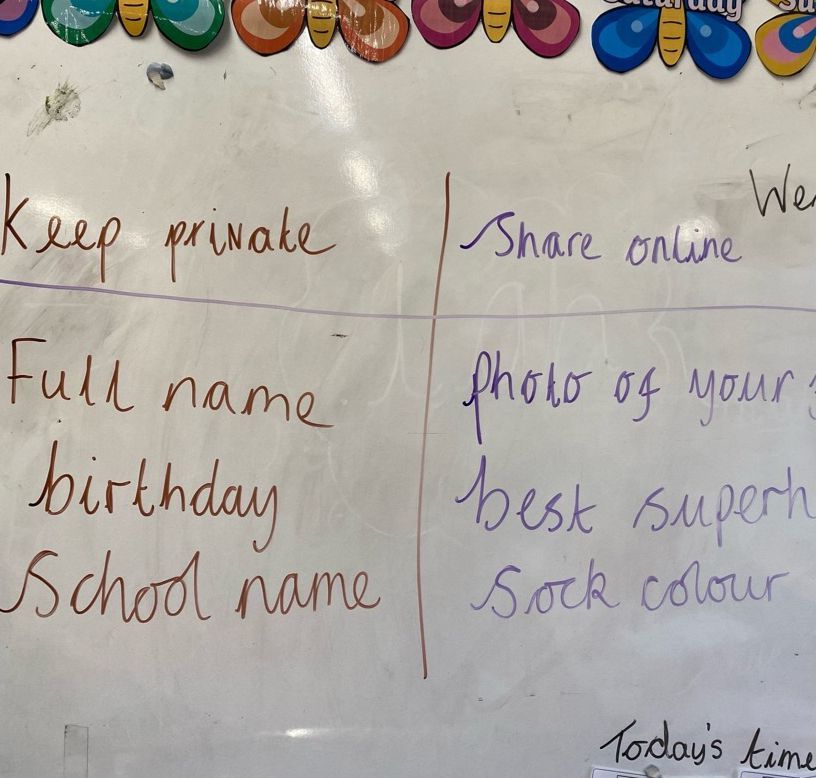 Saturday
Keep private
Share online
Full name
photo of your
birthday
best
School name
Sock colour
Today's time